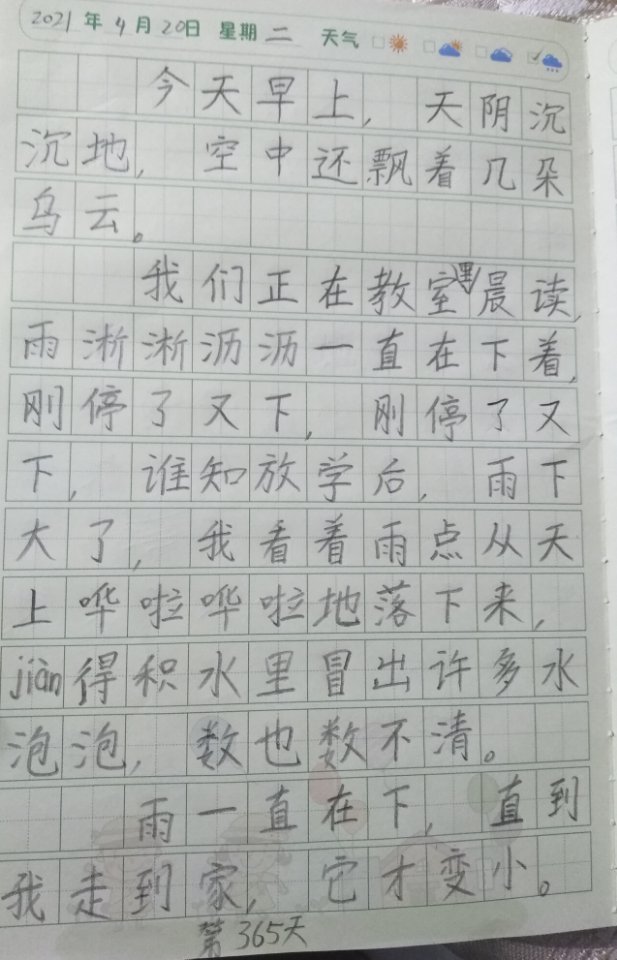 2021年4月20日 星期二 天气
今天早上，天阴沉
沉地，空中还飘着几朵
乌云。
我们正在教室里晨读，
雨淅淅沥沥一直在下着，
刚停了又下，刚停了又
下，谁知放学后，雨下
大了，我看着雨点从天
上哗啦哗啦地落下来，
jiàn得积水里冒出许多水
泡泡，数也数不清。
雨一直在下，直到
我走到家，它才变小。
第365天